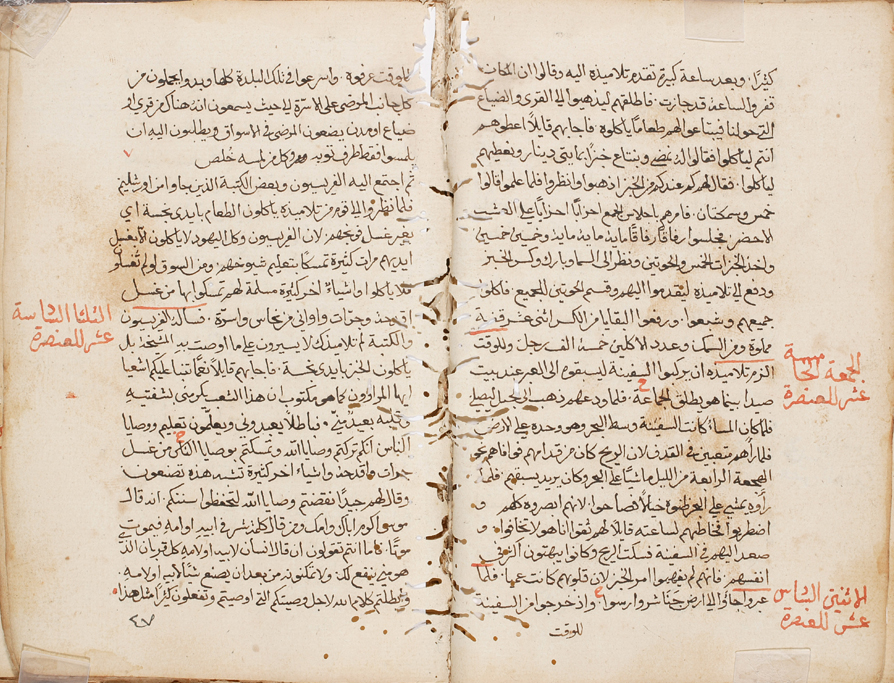 كثيرًا. وبعد ساعة كبيرة تقدم تلاميذه اليه وقالوا ان المكان
قفر والساعة قد جازت. فاطلقهم ليذهبوا الى القرى والضياع
التي حولنا فيبتاعوا لهم طعامًا ياكلوه. فاجابهم قايلًا اعطوهم
انتم لياكلوا فقالوا له نمضي ونبتاع خبزًا بمايتي دينار ونعطيهم
لياكلوا. فقال لهم كم عندكم من الخبز اذهبوا وانظروا فلما علموا قالوا
خمس وسمكتان. فامرهم باجلاس الجمع احزابًا احزابًا على العشب
الاخضر فجلسوا رفاقًا رفاقًا ماية ماية وخمسين خمسين
واخذ الخبزات الخمس والحوتين ونظر الى السما وبارك وكسر الخبز
ودفع الى تلاميذه ليقدموا اليهم وقسم الحوتين للجميع. فاكلوا
جميعهم وشبعوا. ورفعوا البقايا من الكسر اثنى عشر قفة
مملوة ومن السمك. وعدد الاكلين خمسة الف رجل وللوقت
الزم تلاميذه ان يركبوا السفينة ليسبقوه الى العبر عند بيت
صيدا بينما هو يطلق الجماعة. فلما ودعهم ذهب الى الجبل ليصلي
فلما كان المسا كانت السفينة وسط البحر وهو وحده على الارض
فلما راهم متعبين في القذف لان الريح كان من قدامهم فوافاهم نحو
الهجعة الرابعة من الليل ماشيًا على البحر وكان يريد يسبقهم. فلما
راوه يمشي على البحر ظنوه خيالًا فصاحوا. لانهم ابصروه كلهم و
اضطربوا فخاطبهم لساعته قايلًا لهم ثقوا انا هو لا تخافوا. و
صعد اليهم في السفينة فسكت الريح وكانوا يبهتون اكثر في
انفسهم. فانهم لم يفهموا امر الخبز لان قلوبهم كانت عميا. فلما
عبروا جاوا الى ارض جناشر وارسوا. واذ خرجوا من السفينة
للوقت
الجمعة الخامسة
عشر للعنصرة
الاثنين السادس
عشر للعنصرة
للوقت عرفوه. واسرعوا في تلك البلدة كلها وبدوا يحملون من
كل جانب المرضى على الاسرة الى حيث يسمعون انه هناك من قرى او
ضياع او مدن يضعون المرضى في الاسواق ويطلبون اليه ان
يلمسوا فقط طرف ثوبه وكل من لمسه خلص
ثم اجتمع اليه الفريسيون وبعض الكتبة الذين جاوا من اورشليم
فلما نظروا الى قوم من تلاميذه ياكلون الطعام بايدي نجسة اي
بغير غسل لان الفريسيون وكل اليهود لا ياكلون الا بغسل
ايديهم مرات كثيرة تمسكًا بتعليم شيوخهم. ومن السوق
فلا ياكلوا واشياء اخر كثيرة مسلمة لهم تمسكوا بها من غسل
اقداح وجرات واواني من نحاس واسرة. فساله الفريسيون
والكتبة لم تلاميذك لا يسيرون على ما اوصت به المشيخة بل
ياكلون الخبز بايد نجسة. فاجابهم قايلًا نعمًا تنبا عليكم اشعيا
ايها المراوون كما هو مكتوب ان هذا الشعب يكرمني بشفتيه
وقلبه بعيد مني. فباطلًا يعبدوني ويعلمون تعليم ووصايا
الناس انكم تركتم وصايا الله وتمسكتم بوصايا الناس من غسل
جرات واقداح واشياء اخر كثيرة تشبه هذه تصنعون
وقال لهم جيدًا نقضتم وصايا الله لتحفظوا سنتكم. قال
موسى اكرم اباك وامك ومن قال كلمة شر في ابيه او امه فيموت
موتًا. فاما انتم تقولون ان قال انسان لابيه او لامه كل قربان الذي
هو مني ينفع لك. ولا تتركونه من بعد ان يصنع شيئًا لابيه او لامه.
وابطلتم كلام الله لاجل وصيتكم التي اوصيتم وتفعلون كثيرًا مثل هذا
الثلثا السادسة
عشر للعنصرة
٤٧